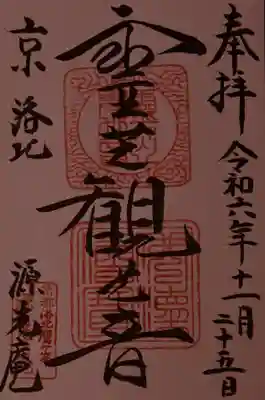 奉拝 令和六年十一月
二十五日
霊芝観世音
京 洛北
源光庵